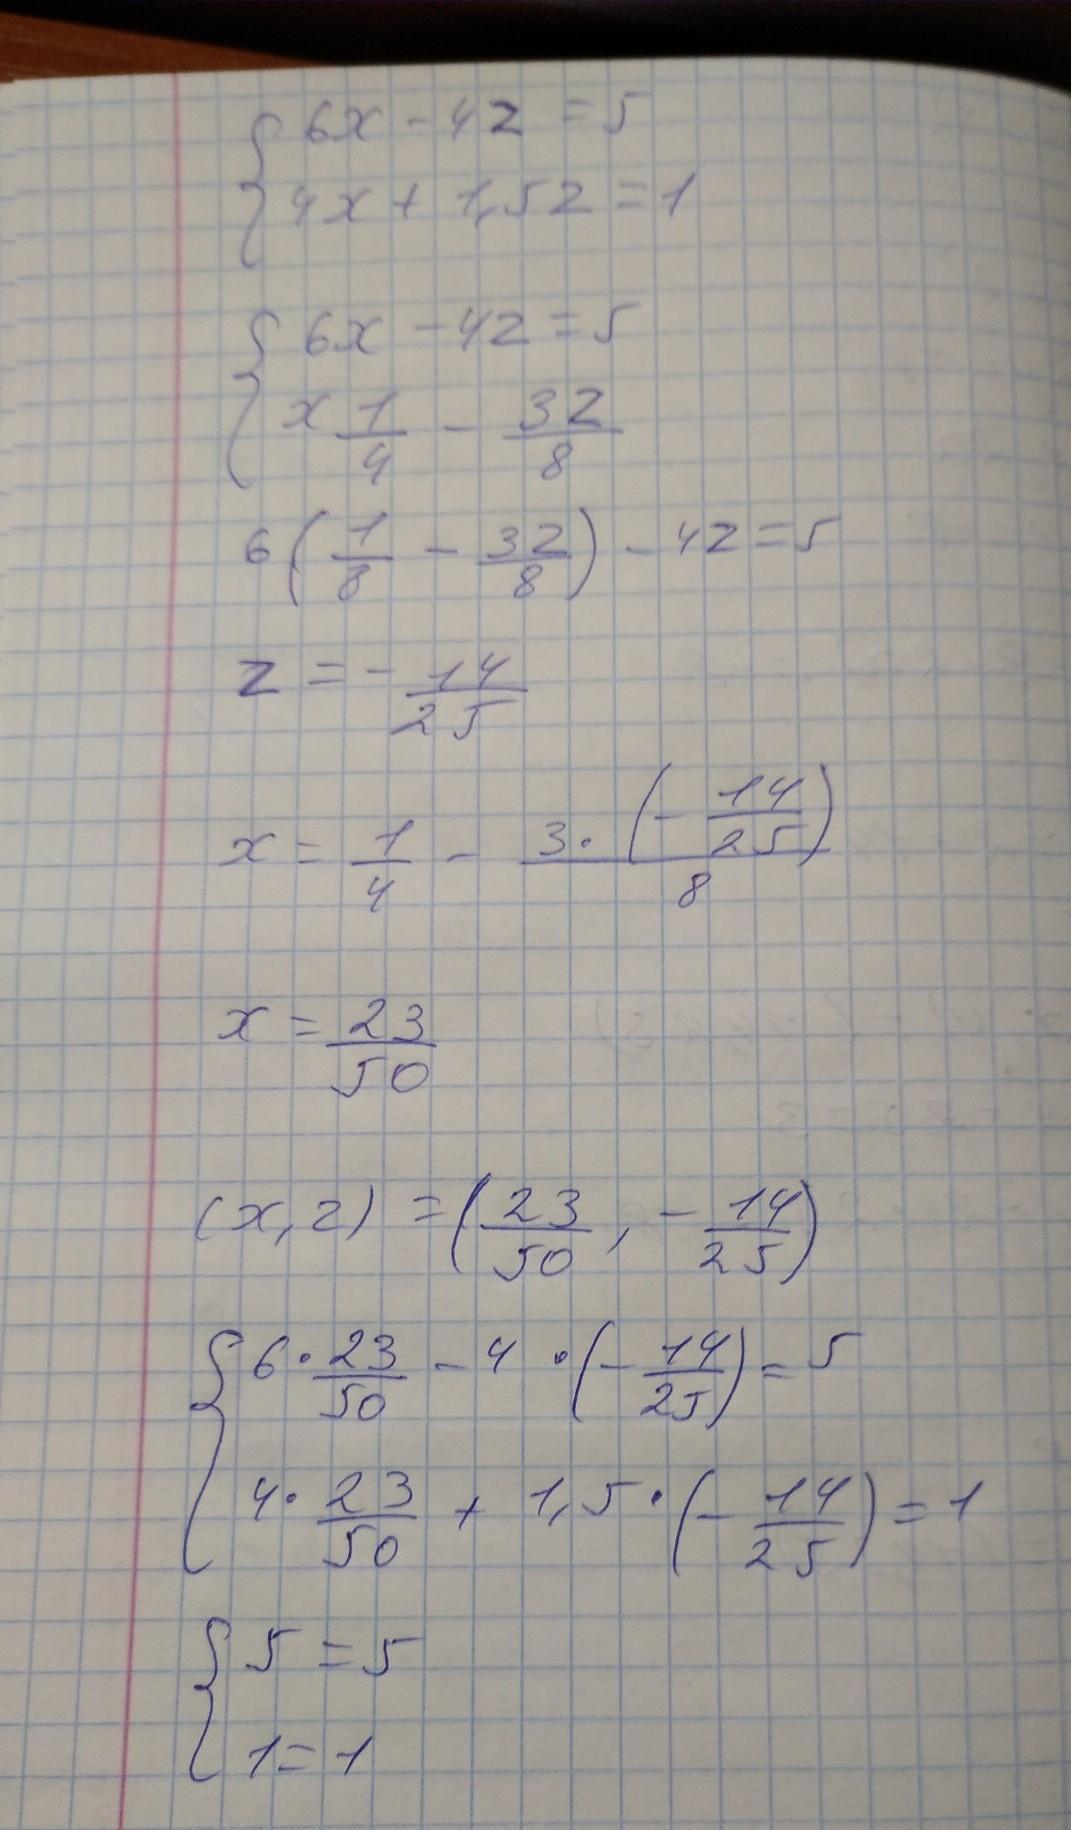 { 6x - 4z = 5
4x + 1,5z = 1
{ 6x - 4z = 5
x 1/4 - 3z/8
6(1/8 - 3z/8) - 4z = 5
z = - 14/25
x = 1/4 - 3·(-14/25)/8
x = 23/50
(x, z) = (23/50, -14/25)
{ 6·23/50 - 4·(-14/25) = 5
4·23/50 + 1,5·(-14/25) = 1
{ 5 = 5
1 = 1